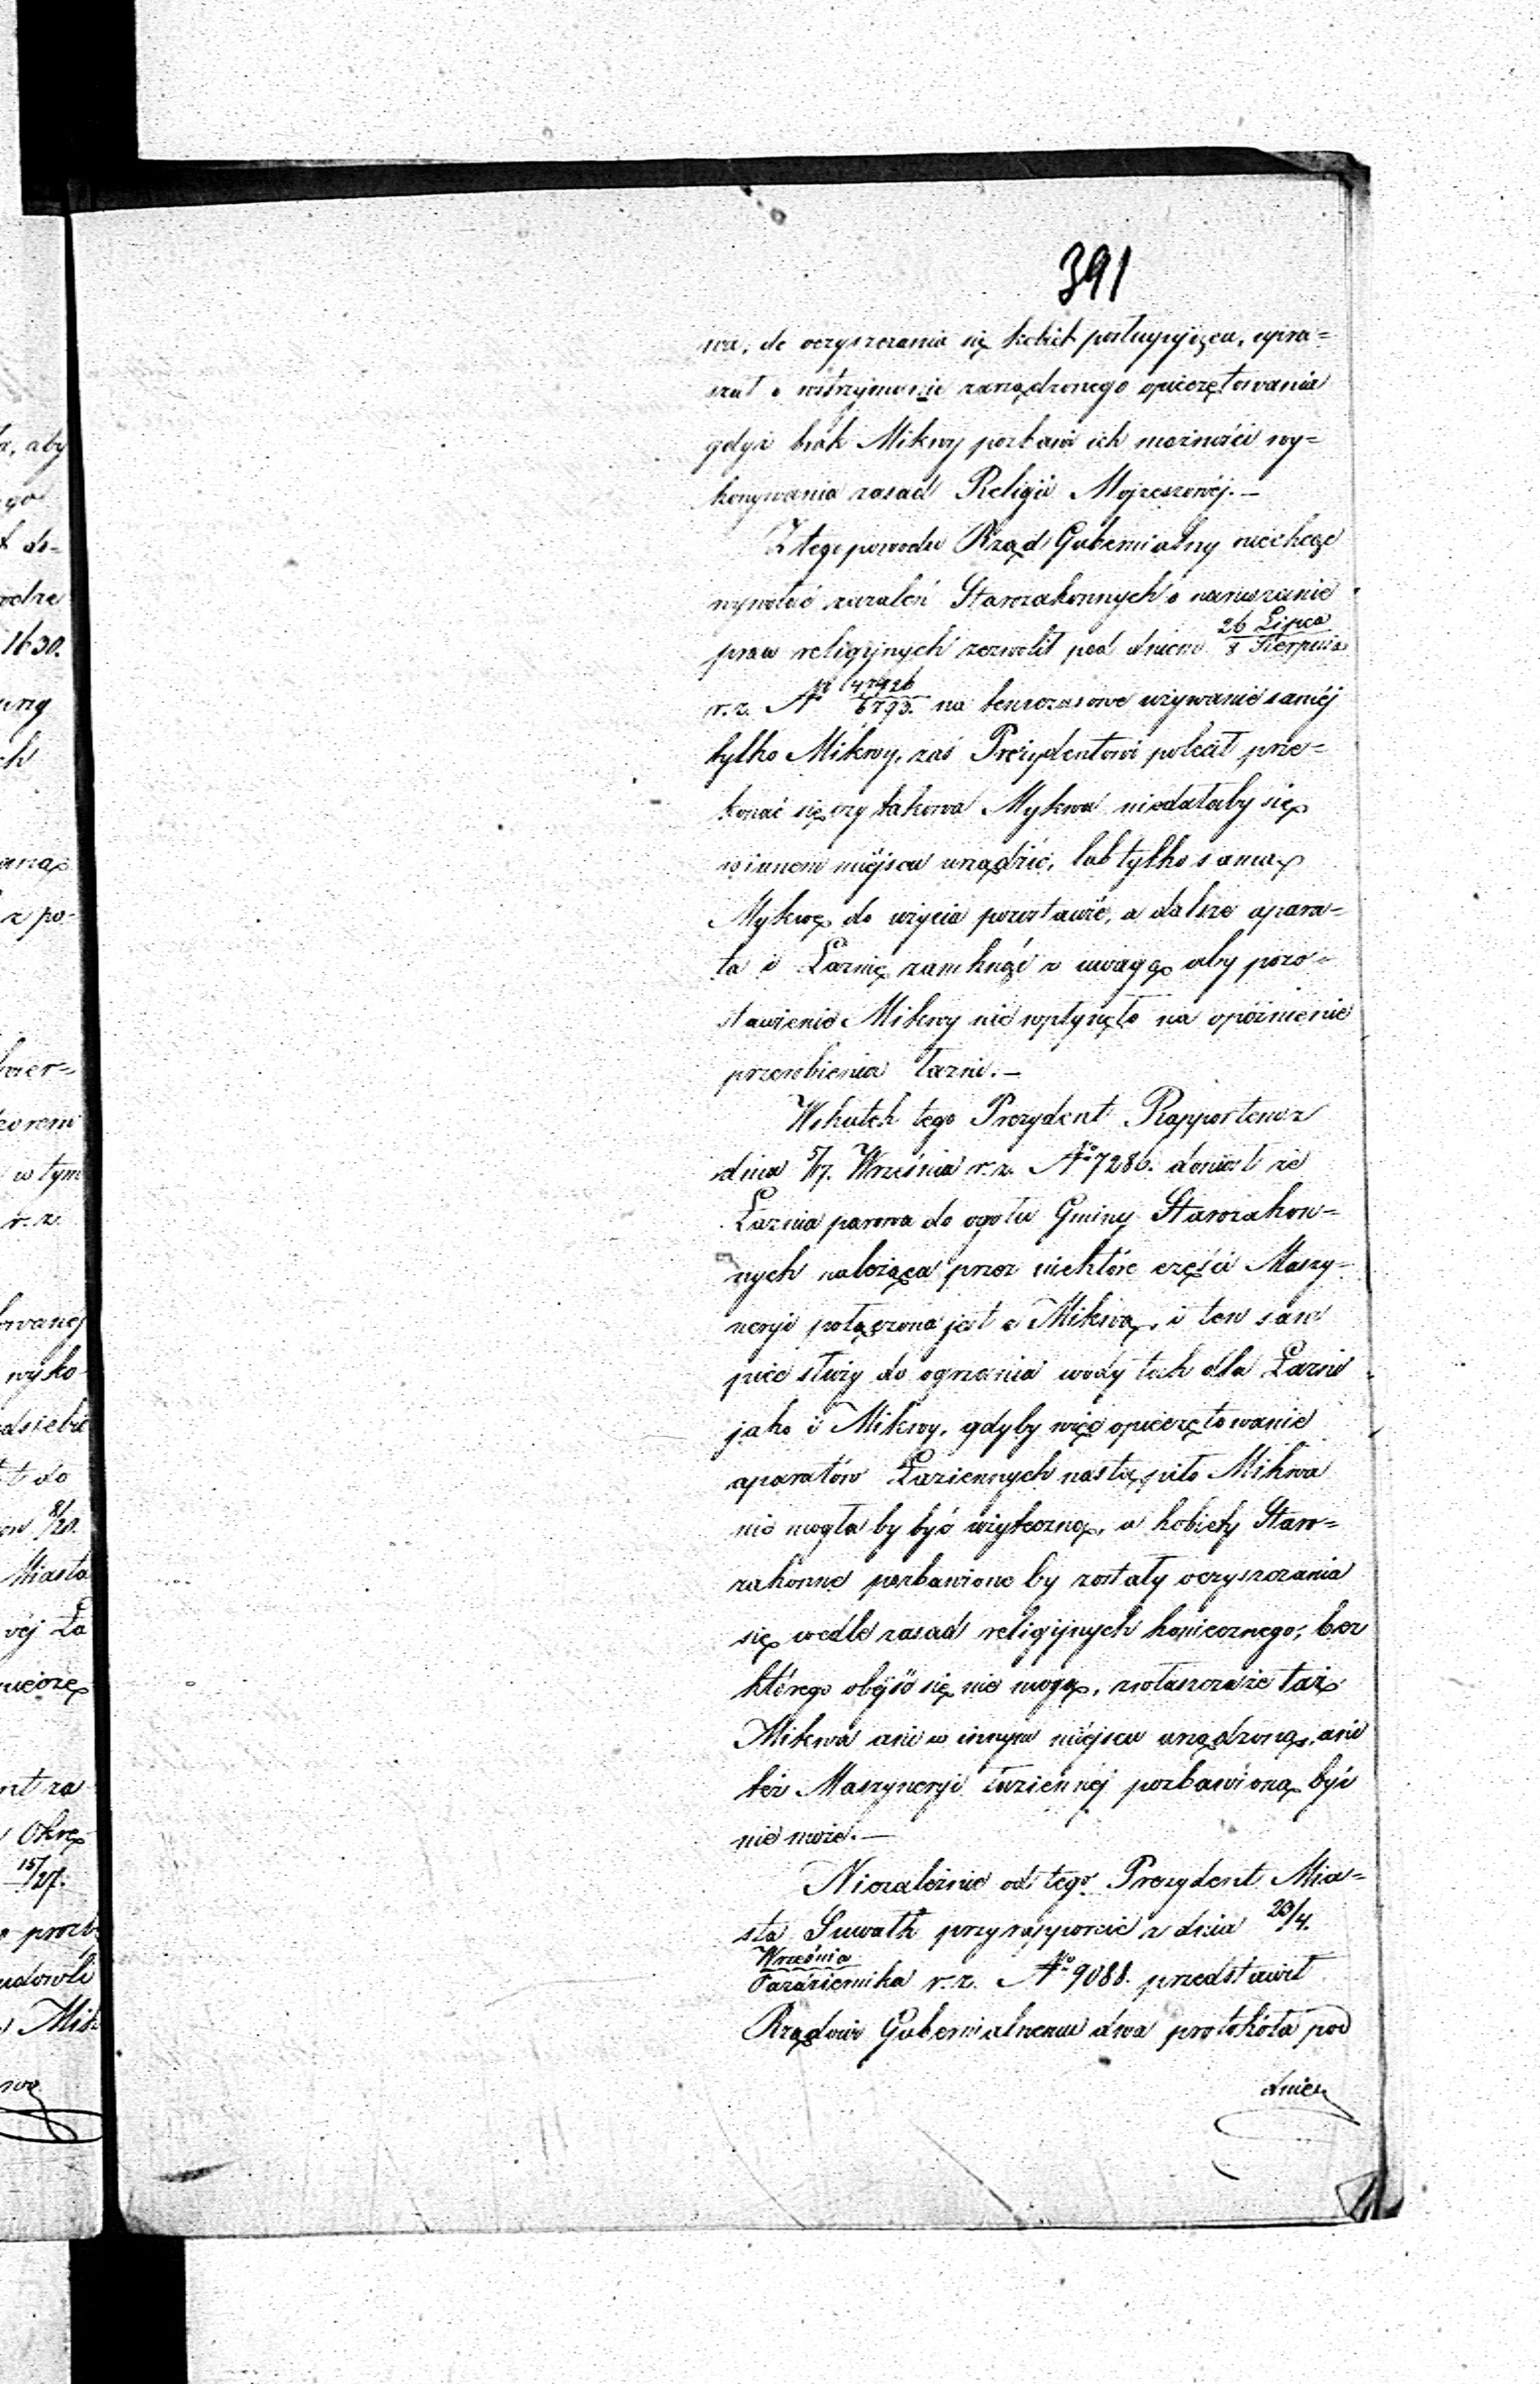 391
wa, do oczyszczania się kobiet posługująca, upra=
szał o wstrzymanie zarządzonego opieczętowania
gdyż brak Mikwy pozbawi ich możności wy=
konywania zasad Religii Mojżeszowéj.—
Z tego powodu Rząd Gubernialny niechcąc
wywołać zażaleń Starozakonnych o naruszanie
praw religijnych zezwolił pod dniem 26 Lipca
Sierpnia
r. z. No 47926
6793. na tymczasowe używanie saméj
tylko Mikwy, zaś Prezydentowi polecił prze=
konać się czy takowa Mykwa niedałaby się
w innem miéjscu urządzić, lub tylko samą
Mykwę do użycia pozostawić, a dalsze apara=
ta i Łaznię zamknąć z uwagą aby pozo=
stawienie Mikwy nie wpłynęło na opóźnienie
przerobienia łazni.—
Wskutek tego Prezydent Rapportem z
dnia 5/17. Września r. z. No 7286. doniósł że
Łaznia parowa do ogółu Gminy Starozakon=
nych należąca przez niektóre części Maszy=
neryi połączona jest z Mikwą, i ten sam
piec służy do ogrzania wody tak dla Łazni
jako i Mikwy, gdyby więc opieczętowanie
aparatów Łaziennych nastąpiło Mikwa
nie mogłaby być użyteczną, a kobiety Staro=
zakonne pozbawione by zostały oczyszczania
się wedle zasad religijnych koniecznego; bez
którego obejść się nie mogą, zwłaszcza że taż
Mikwa ani w innym miéjscu urządzoną, ani
też Maszyneryi łaziennéj pozbawioną być
nie może.—
Niezależnie od tego Prezydent Mia=
sta Suwałk przy rapporcie z dnia 23/4.
Września
Października r. z. No 9088. przedstawił
Rządowi Gubernialnemu dwa protokóła pod
dniem
a, aby
go
do=
odze
1630.
ch
z po-
zer=
w tym
r. z.
owanéj
wyko
do
8/20.
Miasta
véj Ła
nt za
Okrę
15/27.
Mik